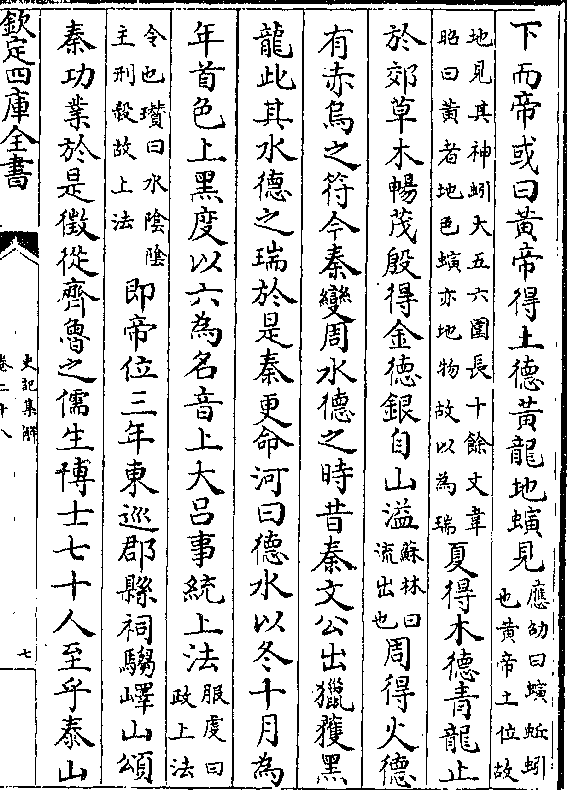 下而帝或曰黃帝得土德黃龍地螾見應劭曰螾蚯蚓也黃帝土位故
地見其神蚓大五六圍長十餘丈韋昭曰黃者地色螾亦地物故以為瑞夏得木德青龍止
於郊草木暢茂殷得金德銀自山溢蘇林曰流出也周得火德
有赤烏之符今秦變周水德之時昔秦文公出獵獲黑
龍此其水德之瑞於是秦更命河曰德水以冬十月為
年首色上黑度以六為名音上大呂事統上法服虔曰政上法
令也瓚曰水陰陰主刑殺故上法即帝位三年東巡郡縣祠騶嶧山頌
秦功業於是徵從齊魯之儒生博士七十人至乎泰山
欽定四庫全書
史記集解
卷二十八
七